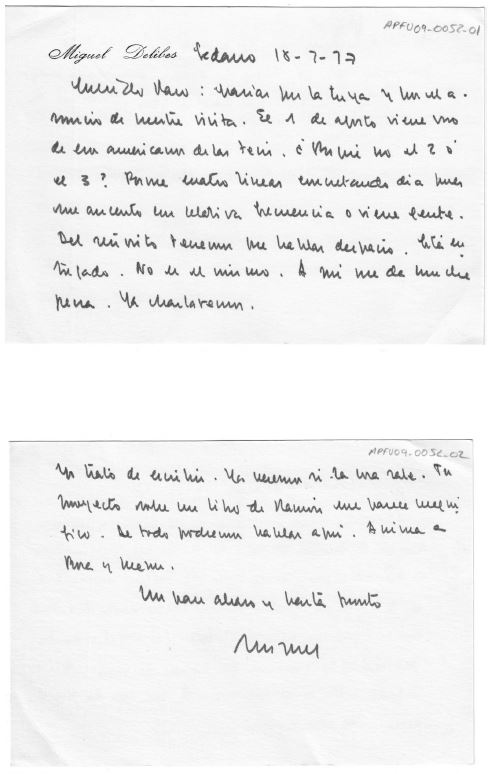 APFU09-0052-01
Miguel Delibes Sedano 18-7-77
Querido Paco: Gracias por la tuya y por el a-
nuncio de vuestra visita. El 1 de agosto viene uno
de esos americanos de las tesis. ¿Por qué no el 2 ó
el 3? Ponme cuatro líneas concretando día pues
me ausento con relativa frecuencia o viene gente.
Del tenemos que hablar despacio. Está en
No es el mismo. A mí me da mucha
pena. Ya charlaremos.
APFU09-0052-02
Yo trato de escribir. Ya veremos si la cosa sale. Tu
proyecto sobre un libro de Ramón me parece magní
fico. De todo podremos hablar aquí. Anima a
y
Un gran abrazo y hasta pronto
Miguel